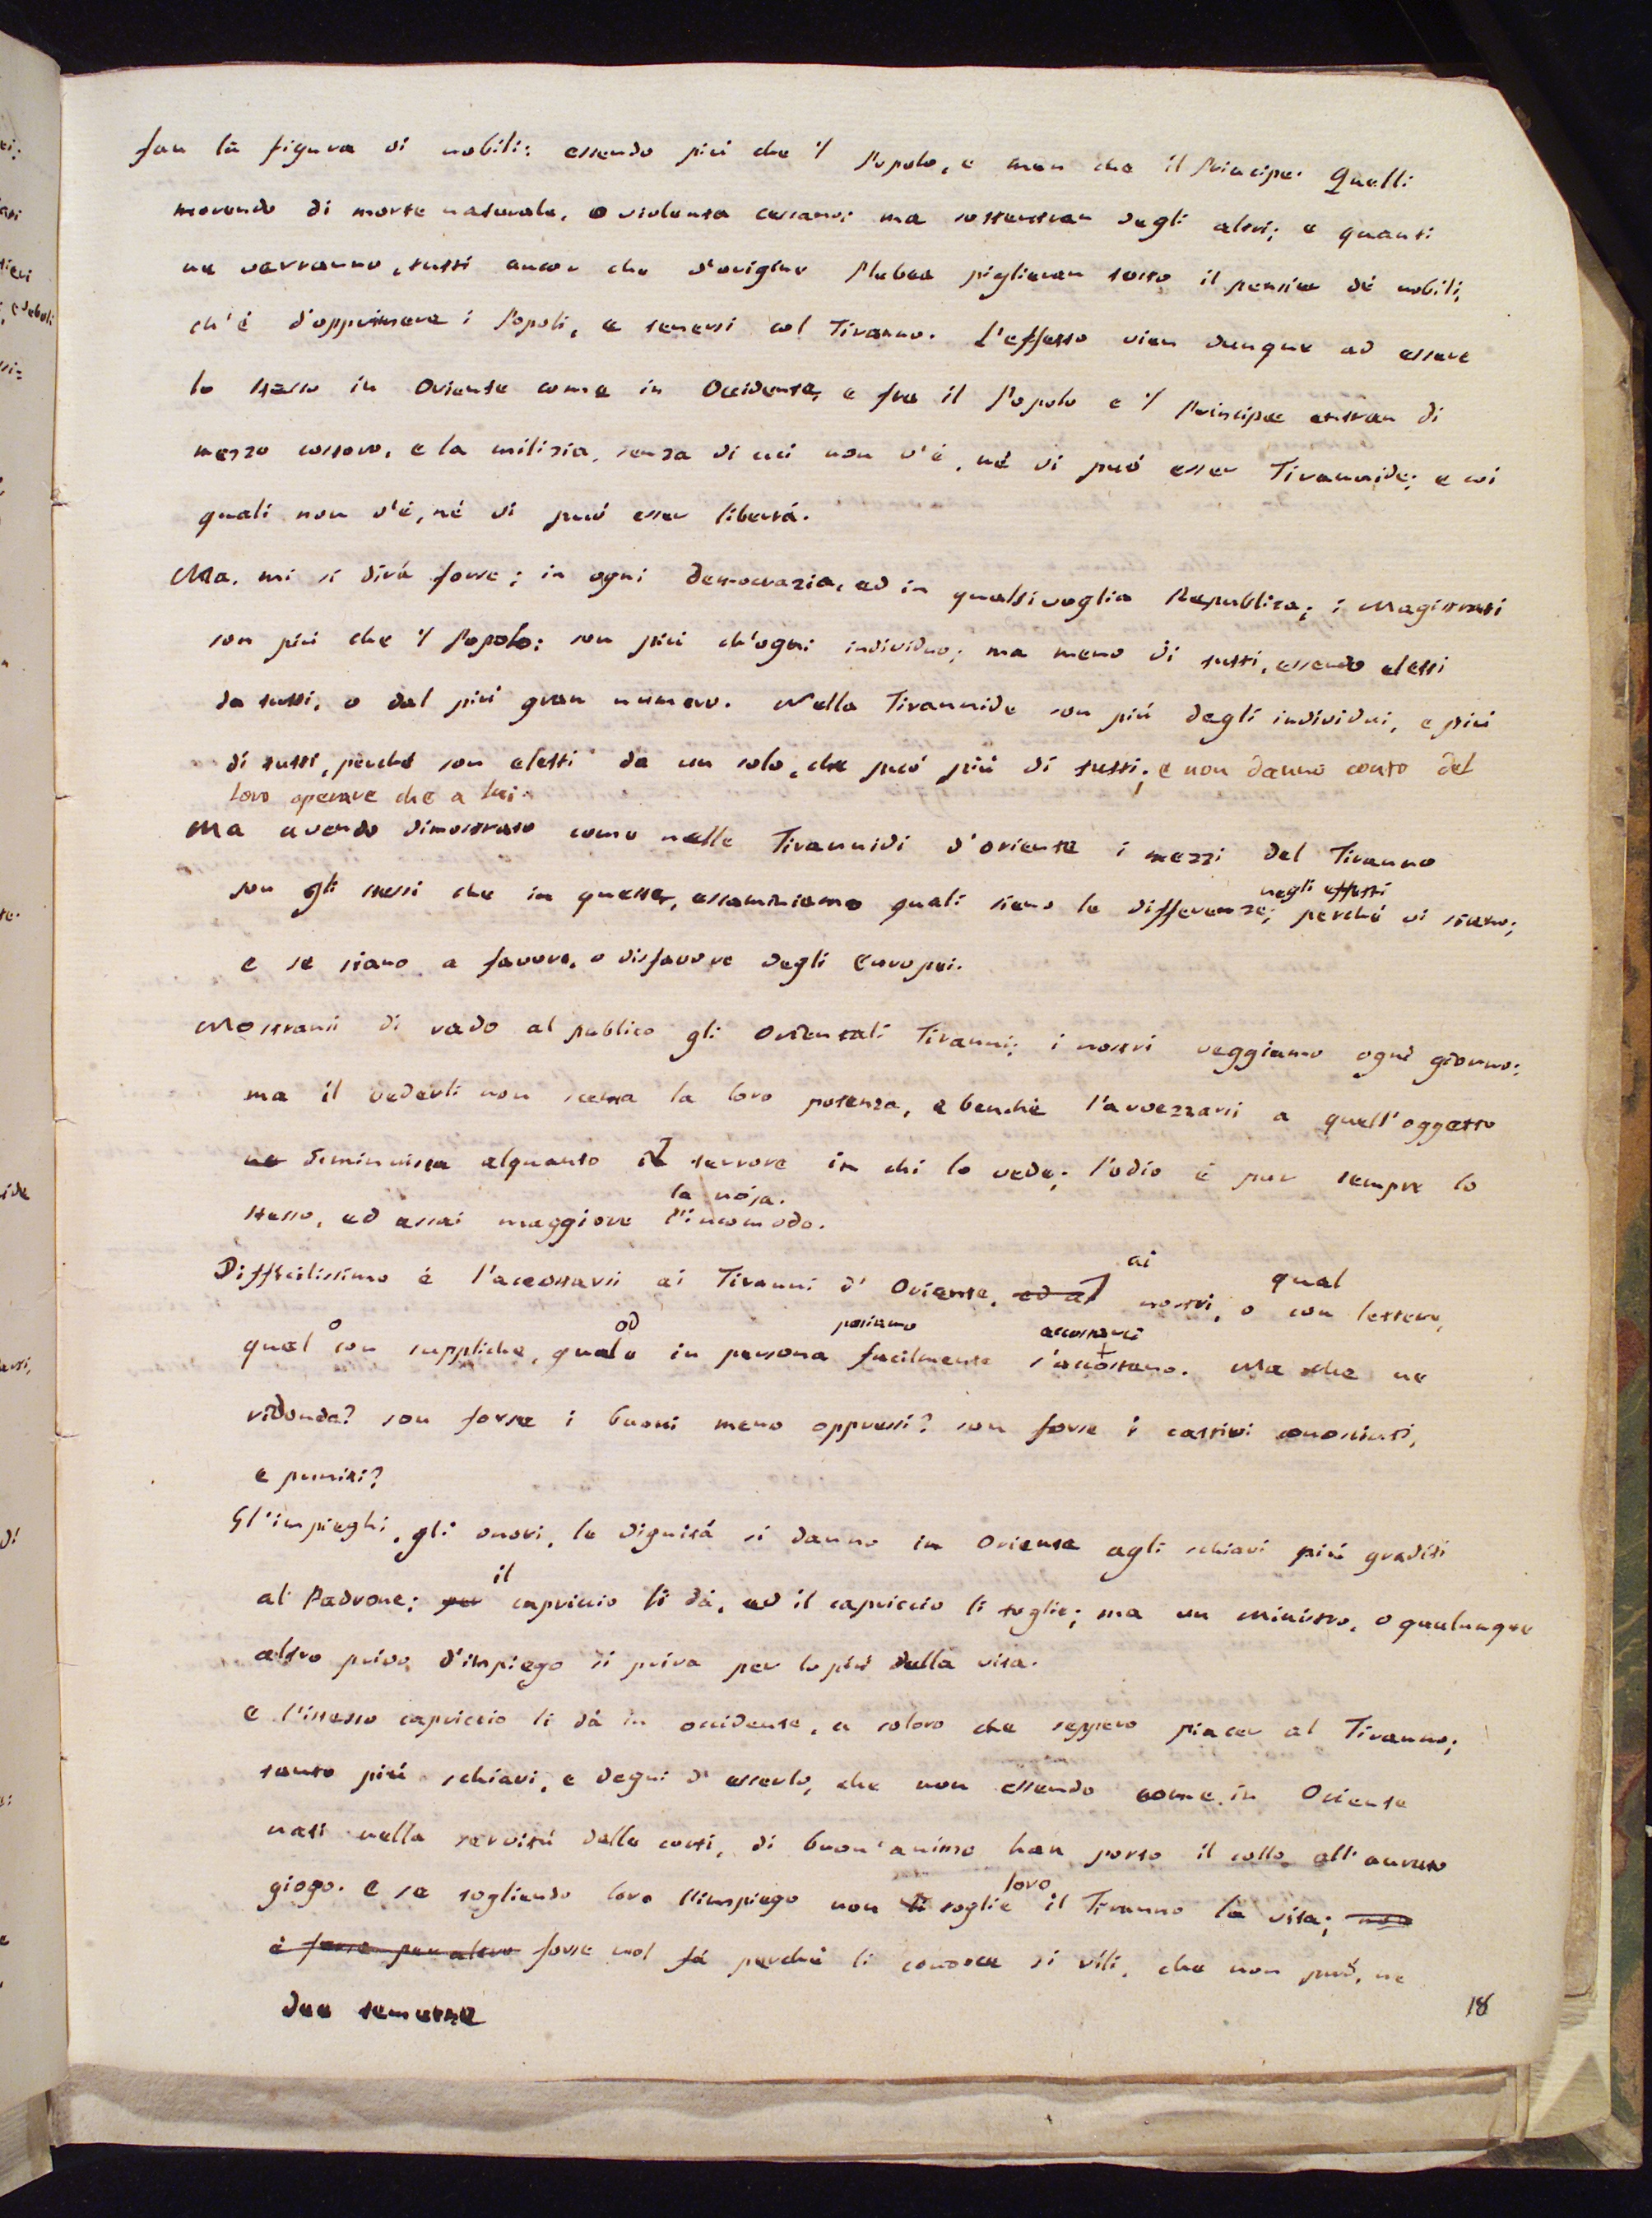 fan la figura di nobili: essendo più che 'l Popolo, e men che il Principe. Quelli
morendo di morte naturale, o violenta cessano: ma sottentran degli altri; e quanti
ne verranno, tutti ancor che d'origine Plebea piglieran tosto il pensier dè nobili,
ch'è d'opprimere i Popoli, e tenersi col Tiranno. L'effetto vien dunque ad essere
lo stesso in Oriente come in Occidente, e fra il Popolo e 'l Principe entran di
mezzo costoro, e la milizia, senza di cui non v'è, nè vi può esser Tirannide; e coi
quali non v'è, nè vi può esser libertà.
Ma, mi si dirà forse; in ogni democrazia, ed in qualsivoglia Republica; i Magistrati
son più che 'l Popolo: son più ch'ogni individuo; ma meno di tutti, essendo eletti
da tutti, o dal più gran numero. Nella Tirannide son più degli individui, e più
di tutti, perchè son eletti da un solo, che può più di tutti; e non danno conto del
loro operare che a lui.
Ma avendo dimostrato come nelle Tirannidi d'oriente i mezzi del Tiranno
negli effetti
son gli stessi che in queste, essaminiamo quali sieno le differenze; perchè vi sieno;
e se siano a favore, o disfavore degli Europei.
Mostransi di rado al publico gli Orientali Tiranni; i nostri veggiamo ogni giorno:
ma il vederli non scema la loro potenza, e benchè l'avvezzarsi a quell'oggetto
ne diminuisca alquanto il terrore in chi lo vede; l'odio è pur sempre lo
la noja.
stesso, ed assai maggiore l'incomodo.
ai qual
Difficilissimo è l'accostarsi ai Tiranni d'Oriente, ed al nostri, o con lettere,
o od possiamo accostarci
qual con suppliche, qualo in persona facilmente s'accostano. Ma che ne
ridonda? son forse i buoni meno oppressi? son forse i cattivi conosciuti,
e puniti?
Gl'impieghi, gli onori, le dignità si danno in Oriente agli schiavi più graditi
il
al Padrone; per capriccio li dà, ed il capriccio li toglie; ma un ministro, o qualunque
altro privo d'impiego si priva per lo più della vita.
e l'istesso capriccio li dà in occidente, a coloro che seppero piacer al Tiranno;
tanto più schiavi, e degni d'esserlo, che non essendo come in Oriente
nati nella servitù delle corti, di buon'animo han porto il collo all'aurato
loro
giogo. e se togliendo loro l'impiego non li toglie il Tiranno la vita; non
è forse per altro forse nol fà perchè li conosce sì vili, che non può, ne
dee temerne
18